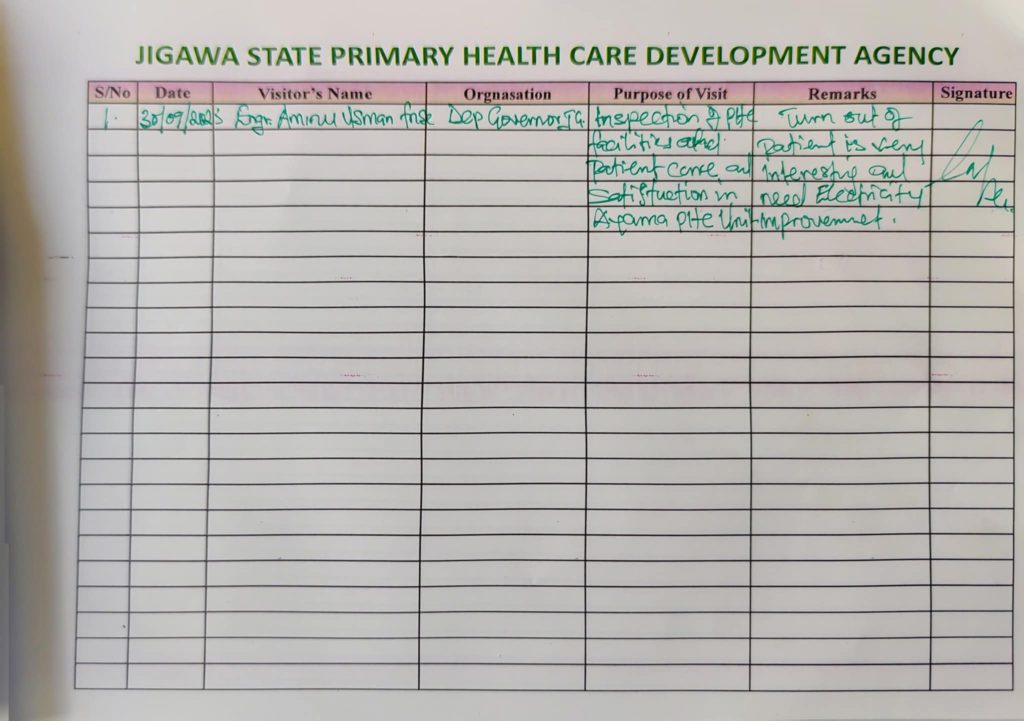 JIGAWA STATE PRIMARY HEALTH CARE DEVELOPMENT AGENCY
S/No Date Visitor's Name Orgnasation Purpose of Visit Remarks Signature
1. 30/09/2025 Engr. Aminu Usman Dep Governor JG Inspection of PHC Turn out of
facilities and Patient is very
Patient care and interesting and
Satisfaction in need Electricity
PHC Unit improvement.